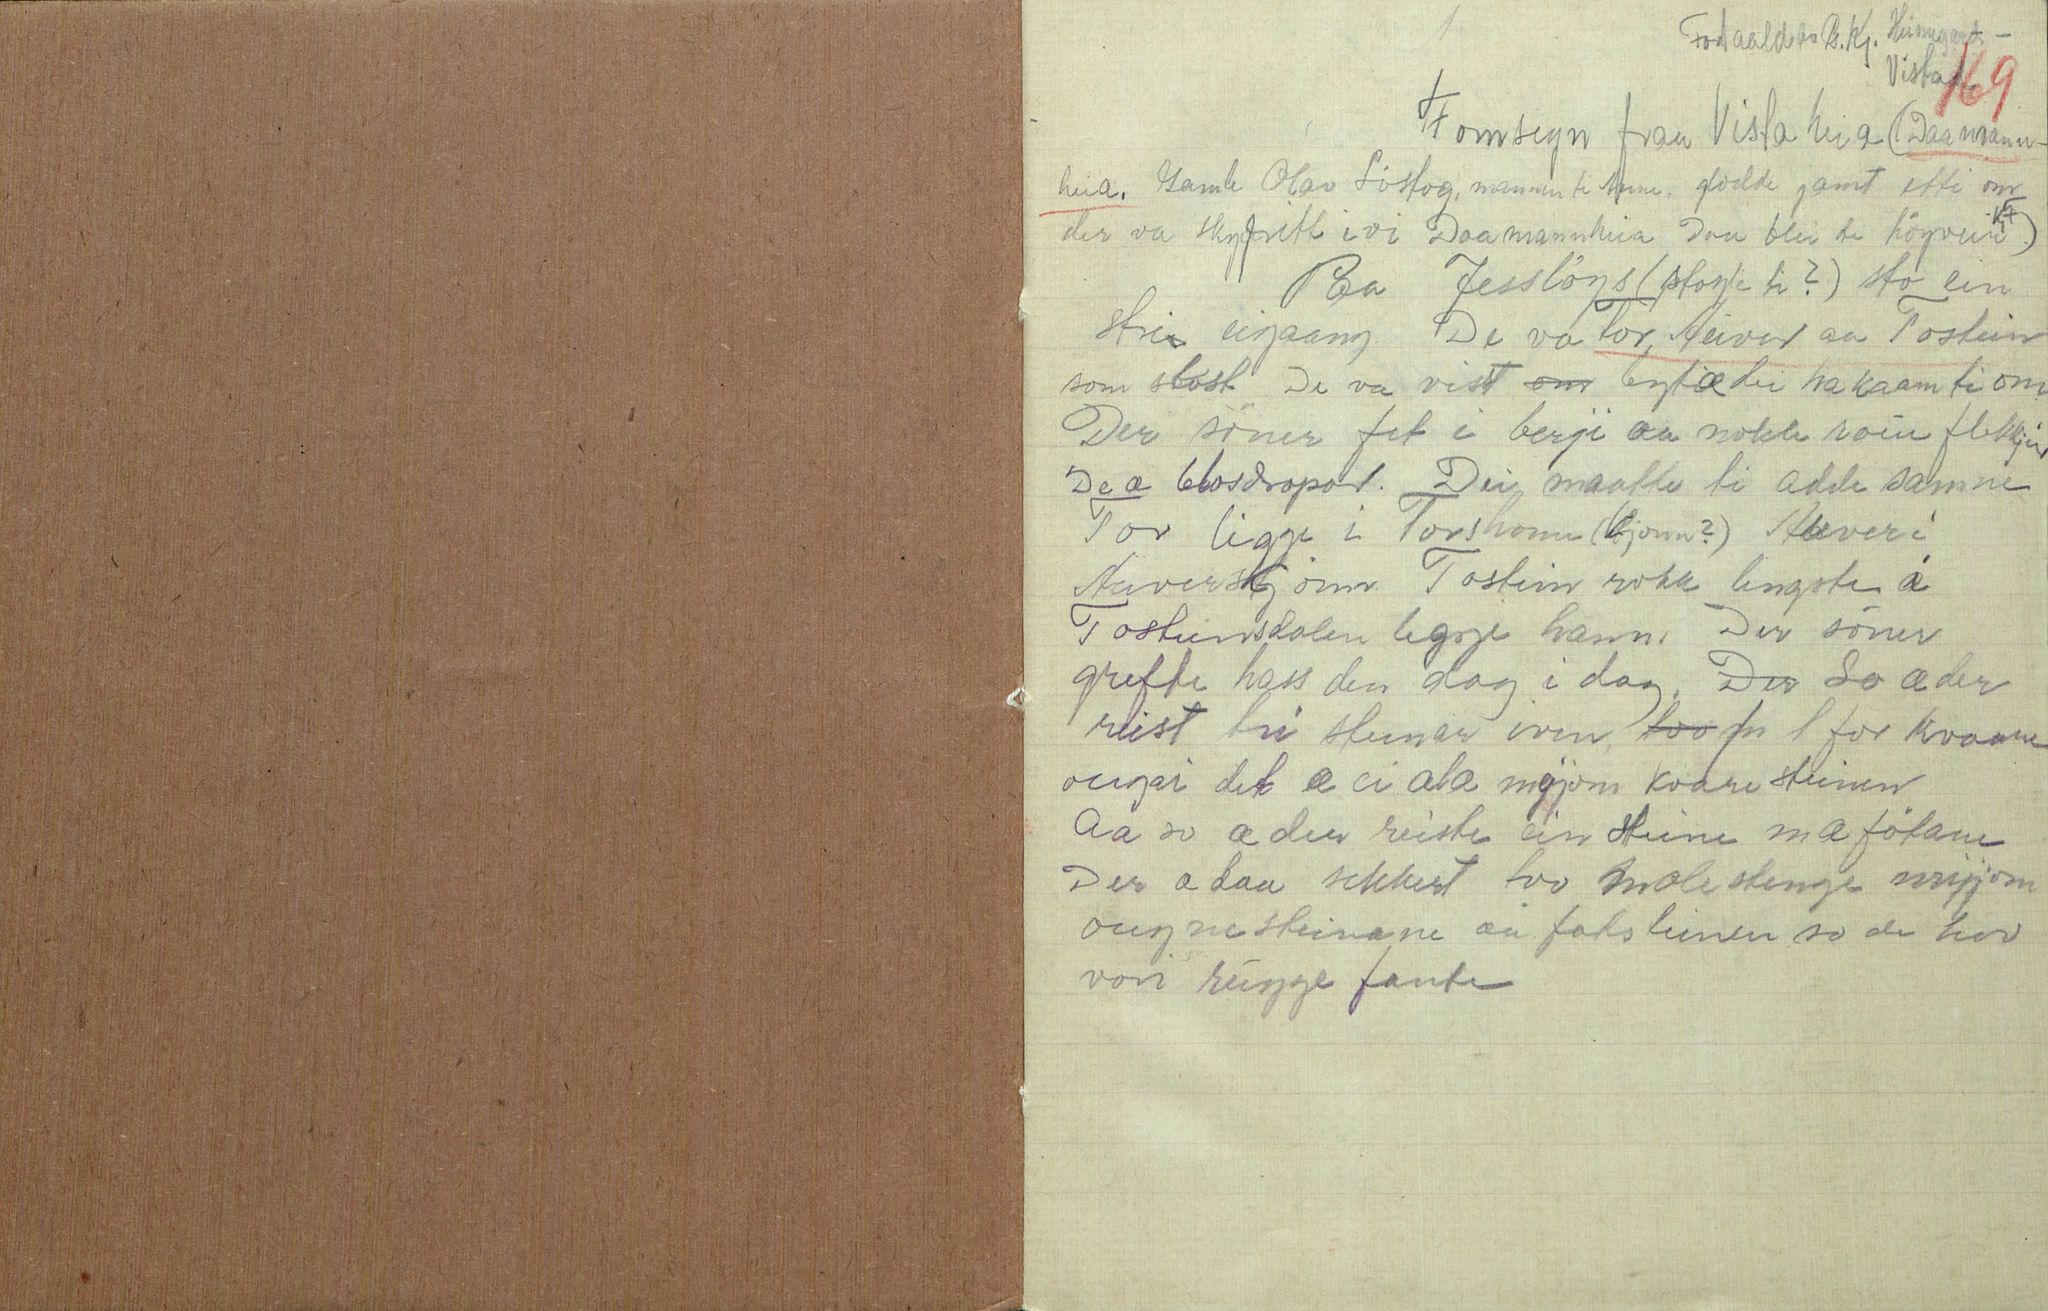 1
Fortaald to B. Kj. Heimigards-
Vistad
169
Fomsegn fraa Vistaheia (Daamann-
heia. Gamle Olav Listog, mannen ti Anne, glødde jamt etti om
der va skyfritt ivi Daamannheia Daa blei de högveirt.)
Paa Jesslöys (støyle ti?) sto ein
stri eigaang. De va Tor, Aeivor aa Tostein
som slost. De va vist om bytæ dei ha kaam ti om
Der söner fet i bergji aa nokle roeu flekkjir
De æ blosdropar. Dei maatte ti adde samne
Tor ligge i Torshonn (tjonn?) Aever i
Aeverstjönn. Tostein rokk lengste i
Tosteinsdalen leggje hann. Der söner
grefte hass den dag i dag. Der So æ der
reist tri steinar iven, too fu l for kvaane
ougæi det æ ei ala mijjom kvare steinen
Aa so æ der reiste ein steine mæ fötane
Der æ daa sekkert too mælestenge mijjom
ougnesteinane aa fotsteinen so de hev
vori reugge fante